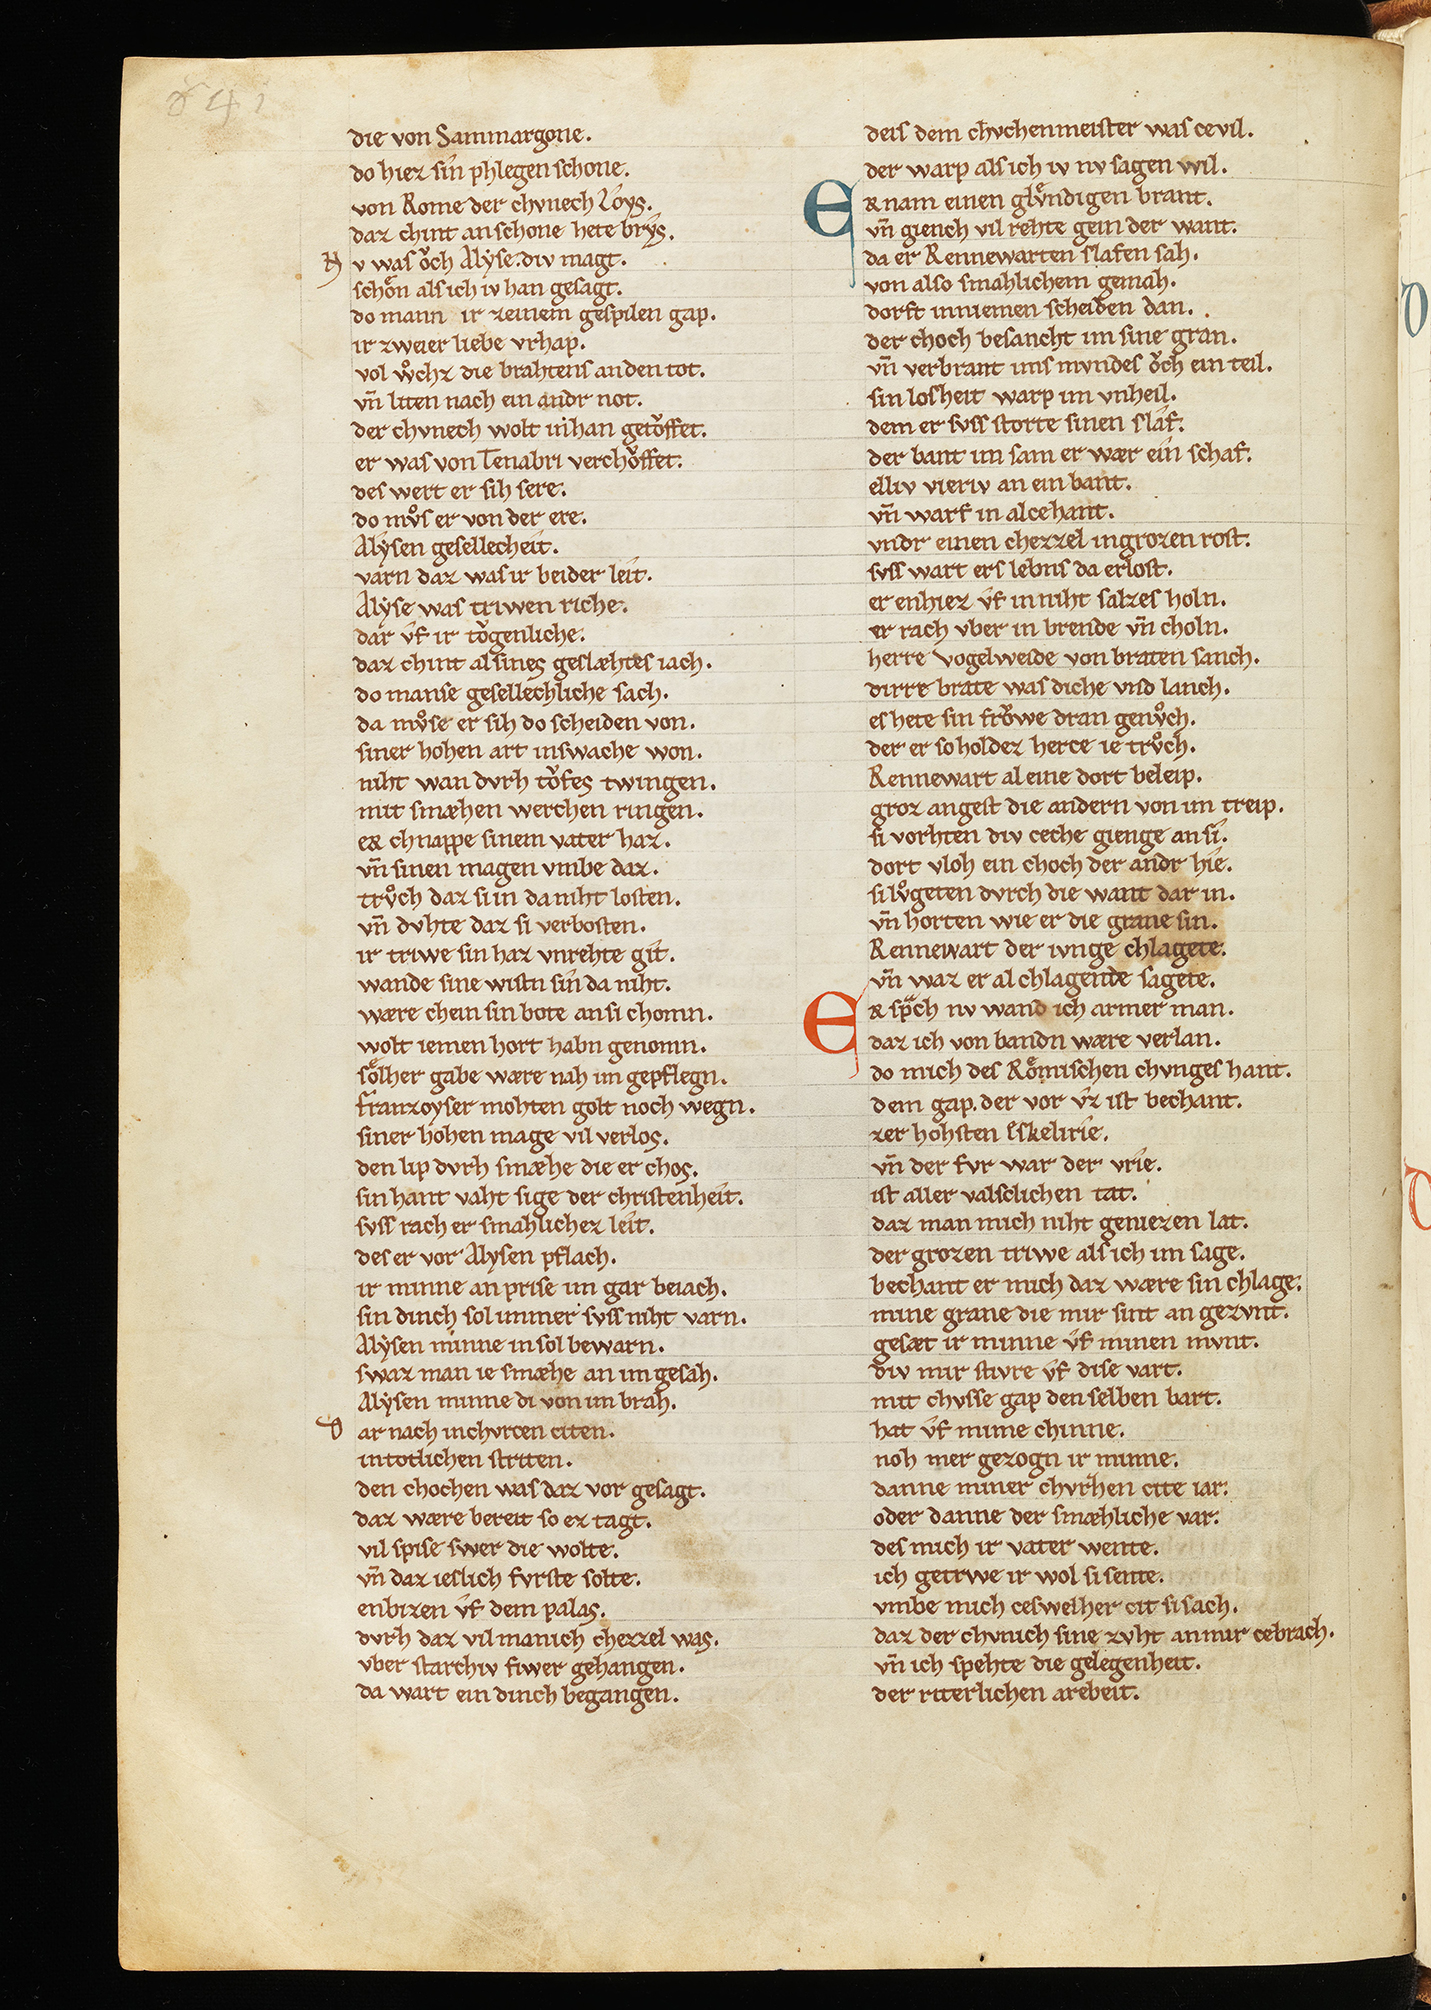 841
die von Sammargone.
do hiez sin phlegen schone.
von Rome der chvnech Loys.
daz chint an schone hete brys.
Nv was oͮch Alyse. div magt.
schoͤn als ich iv han gesagt.
do mann ir zeinem gespilen gap.
ir zweier liebe vrhap.
vol wͦchz die brahtens an den tot.
vn̄ liten nach ein andr not.
der chvnech wolt in han getoͮffet.
er was von Tenabri verchoͮffet.
des wert er sih sere.
do mvͦs er von der ere.
Alysen gesellecheit.
varn daz was ir beider leit.
Alyse was triwen riche.
dar vf ir toͮgenliche.
daz chint al sines geslæhtes iach.
do manse gesellechliche sach.
da mvͦse er sih do scheiden von.
siner hohen art in swache won.
niht wan dvrh toͮfes twingen.
mit smæhen werchen ringen.
er chnappe sinem vater haz.
vn̄ sinen magen vmbe daz.
trvͦch daz si in da niht losten.
vn̄ dvhte daz si verbosten.
ir triwe sin haz vnrehte git.
wande sine wistn sin da niht.
wære chein sin bote an si chomn.
wolt iemen hort habn genomn.
soͤlher gabe wære nah im gepflegn.
franzoyser mohten golt noch wegn.
siner hohen mage vil verlos.
den lip dvrh smæhe die er chos.
sin hant vaht sige der christenheit.
svss rach er smahlichez leit.
des er vor Alysen pflach.
ir minne an prise im gar beiach.
sin dinch sol immer svss niht varn.
Alysen minne in sol bewarn.
swaz man ie smæhe an im gesah.
Alysen minne di von im brah.
Dar nach in chvrcen citen.
in totlichen striten.
den chochen was daz vor gesagt.
daz wære bereit so ez tagt.
vil spise swer die wolte.
vn̄ daz ieslich fvrste solte.
enbizen vf dem palas.
dvrh daz vil manich chezzel was.
vber starchiv fiwer gehangen.
da wart ein dinch begangen.
deis dem chvchenmeister was cevil.
der warp als ich iv nv sagen wil.
Er nam einen glvͤndigen brant.
vn̄ giench vil rehte gein der want.
da er Rennewarten slafen sah.
von also smahlichem gemah.
dorft in niemen scheiden dan.
der choch besancht im sine gran.
vn̄ verbrant ims mvndes oͮch ein teil.
sin losheit warp im vnheil.
dem er svss storte sinen slaf.
der bant im sam er wær ein schaf.
elliv vieriv an ein bant.
vn̄ warf in alcehant.
vndr einen chezzel in grozen rost.
svss wart ers lebns da erlost.
er enhiez vf in niht salzes holn.
er rach vber in brende vn̄ choln.
herre Vogelweide von braten sanch.
dirre brate was diche vnd lanch.
es hete sin froͮwe dran genvͦch.
der er so holdez herce ie trvͦch.
Rennewart al eine dort beleip.
groz angest die andern von im treip.
si vorhten div ceche gienge an si.
dort vloh ein choch der andr hie.
si lvͦgeten dvrch die want dar in.
vn̄ horten wie er die grane sin.
Rennewart der ivnge chlagete.
vn̄ waz er al chlagende sagete.
Er spͣch nv wand ich armer man.
daz ich von bandn wære verlan.
do mich des Roͤmischen chvnges hant.
dem gap. der vor vz ist bechant.
zer hohsten Eskelirie.
vn̄ der fvr war der vrie.
ist aller valsclichen tat.
daz man mich niht geniezen lat.
der grozen triwe als ich im sage.
bechant er mich daz wære sin chlage.
mine grane die mir sint an gezvnt.
gesæt ir minne vf minen mvnt.
div mir stivre vf dise vart.
mit chvsse gap den selben bart.
hat vf mime chinne.
noh mer gezogn ir minne.
danne miner chvrhen cite iar.
oder danne der smæhliche var.
des mich ir vater wente.
ich getrwe ir wol si sente.
vmbe mich ceswelher cit si sach.
daz der chvnich sine zvht an mir cebrach.
vn̄ ich spehte die gelegenheit.
der riterlichen arebeit.